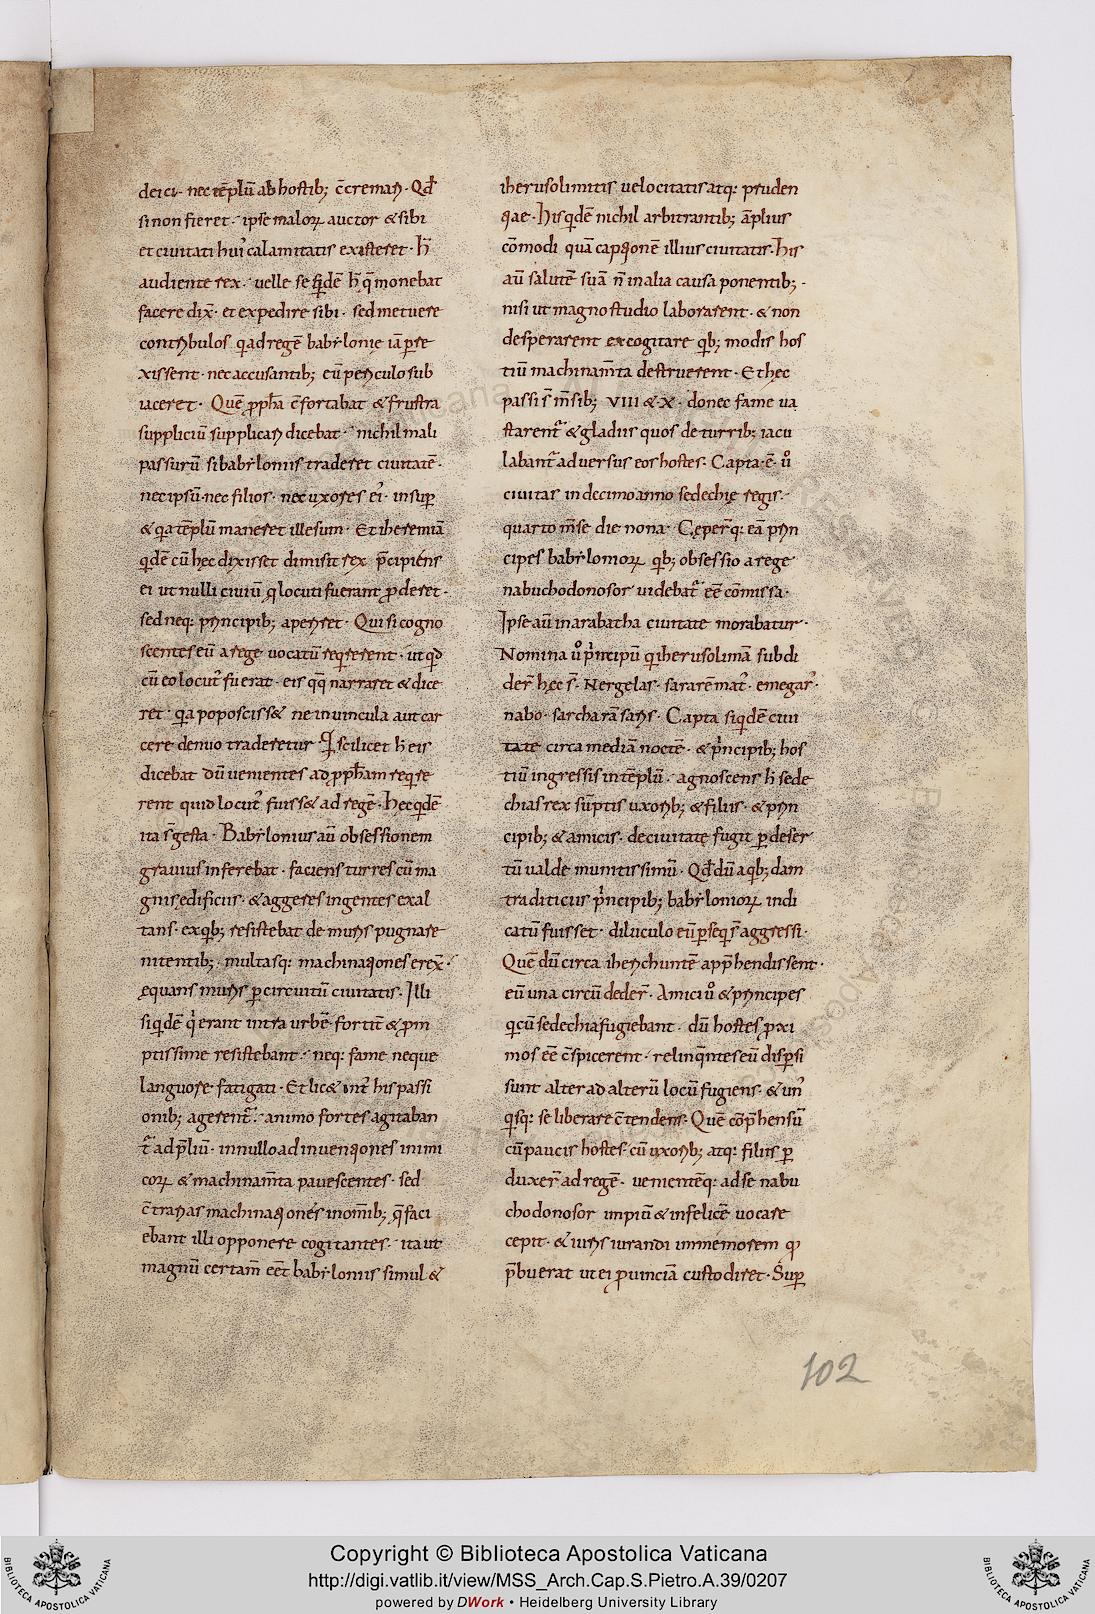 deici· nec tēplū ab hostib; c̄cremar̄· Qd̄
si non fieret· ipse maloꝝ auctor & sibi
et ciuitati hui' calamitatis existeret· h̄
audiente rex· uelle se qdē h̄ q̄ monebat
facere dix̄· et expedire sibi· sed metuere
contribulos q ad regē babẏlonię iā ꝑre
xissent· nec accusantib; eū periculo sub
iaceret· Quē ꝓph̄a c̄fortabat & frustra
suppliciū supplicari dicebat· nichil mali
passurū si babẏloniis traderet ciuitatē·
nec ipsū· nec filios· nec uxores ei'· insuꝑ
& qa tēplū maneret illesum· Et iheremiā
qdē cū hęc dixisset dimisit rex p̄cipiens
ei ut nulli ciuiū q locuti fuerant ꝓderet·
sed neq: principib; aperiret· Qui si cogno
scentes eū a rege uocatū reqrerent· ut qd
cū eo locut' fuerat· eis qq narraret & dice
ret· qa poposciss& ne in uincula aut car
cere denuo traderetur· Qi scilicet h̄ eis
dicebat dū uenientes ad ꝓph̄am reqre
rent quid locut' fuiss& ad regē· hęc qdē
ita s̄ gesta· Babẏlonius aū obsessionem
grauius inferebat· faciens turres cū ma
gnis ędificiis· & aggeres ingentes exal
tans· ex qb; resistebat de muris pugnare
nitentib;· multasq: machinationes erex̄·
ęquans muris ꝑ circuitū ciuitatis· Illi
siqdē q erant intra urbē fortit̄ & prm
ptissime resistebant· neq: fame neque
languore fatigati· Et lic& int' his passi
onib; agerent'· animo fortes agitaban
t' ad p̄liū· in nullo ad inuentiones inimi
coꝝ & machinam̄ta pauescentes· sed
c̄trarias machinationes in om̄ib; q̄ faci
ebant illi opponere cogitantes· ita ut
magnū certam̄ eēt babẏloniis simul &
iherusolimitis uelocitatis atq: pruden
tiae· His qdē nichil arbitrantib; āplius
cōmodi quā captionē illius ciuitatis· his
aū salutē suā n̄ in alia causa ponentib;·
nisi ut magno studio laborarent· & non
desperarent excogitare qb; modis hos
tiū machinam̄ta destruerent· Et hęc
passi s̄ m̄sib; VIII & X· donec fame ua
starent' & gladiis quos de turrib; iacu
labant' aduersus eos hostes· Capta· ē· u°
ciuitas in decimo anno sedechię regis·
quarto m̄se die nona· Cęper̄q: eā prin
cipes babẏlonioꝝ qb; obsessio a rege
nabuchodonosor uidebat' eē cōmissa·
Ipse aū in arabatha ciuitate morabatur·
Nomina u° principū q iherusolimā subdi
der̄ hęc s̄· Nergelas· sararē mat'· emegar'·
nabo· sarcharā saris· Capta siqdē ciui
tate circa mediā noctē· & principib; hos
tiū ingressis in tēplū· agnoscens h̄ sede
chias rex sūptis uxorib; & filiis· & prin
cipib; & amicis· de ciuitate fugit ꝑ deser
tū ualde munitissimū· Qd̄ dū a qb;dam
traditiciis principib; babẏlonioꝝ indi
catū fuisset· diluculo eū ꝑseq s̄ aggressi·
Quē dū circa iherichuntē app̄hendissent·
eū una circūdeder̄· Amici u° & principes
q cū sedechia fugiebant· dū hostes ꝓxi
mos eē c̄spicerent· relinq̄ntes eū disꝑsi
sunt alter ad alterū locū fugiens· & un'
qsq: se liberare c̄tendens· Quē cōp̄hensū
cū paucis hostes· cū uxorib; atq: filiis ꝑ
duxer̄ ad regē· uenientēq: ad se nabu
chodonosor impiū & infelicē uocare
cepit· & iuris iurandi immemorem q
p̄buerat ut ei ꝓuinciā custodiret· Suꝑ
102
Copyright © Biblioteca Apostolica Vaticana
http://digi.vatlib.it/view/MSS_Arch.Cap.S.Pietro.A.39/0207
powered by DWork • Heidelberg University Library
BIBLIOTECA APOSTOLICA VATICANA
BIBLIOTECA APOSTOLICA VATICANA